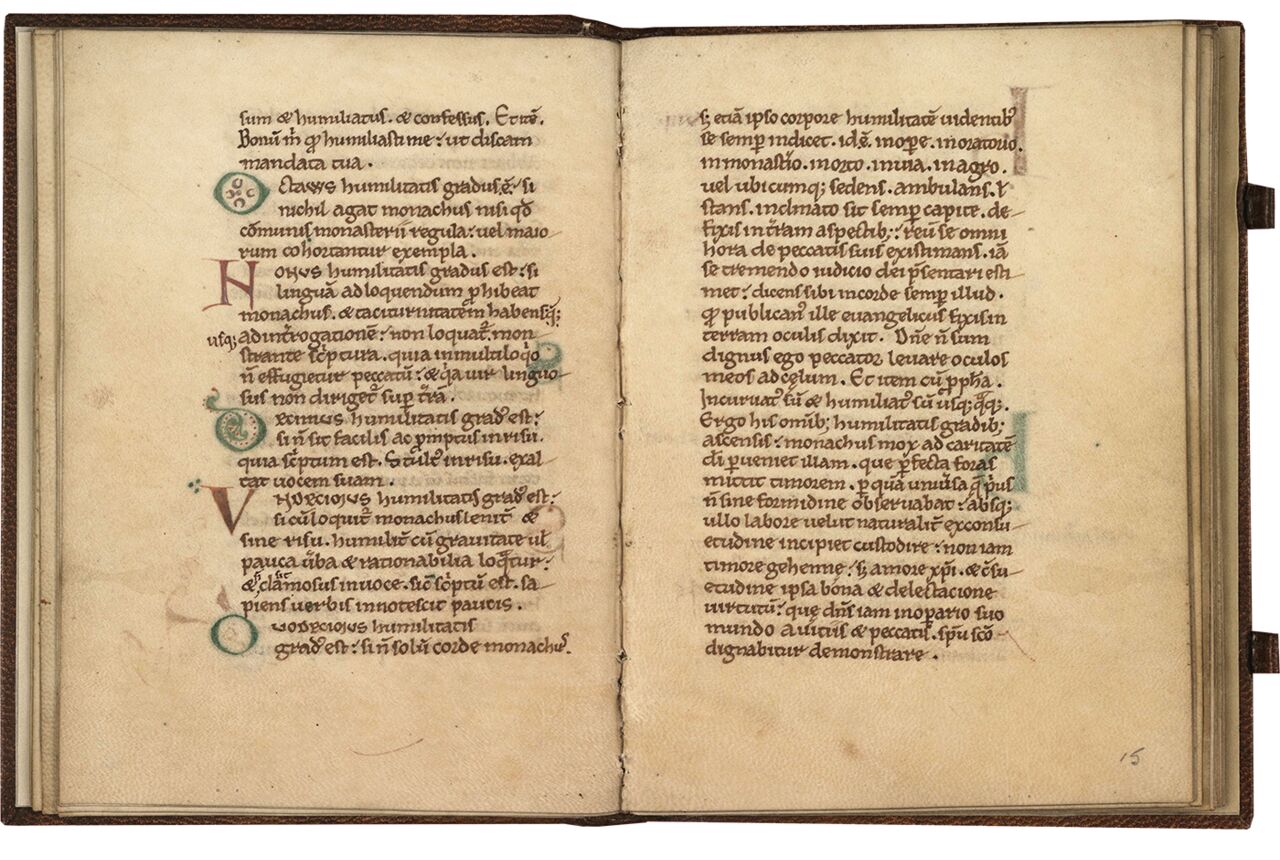 sum & humiliatus. & confessus. Et itē.
Bonum m̄ qđ humiliasti me: ut discam
mandata tua.
OCtaws humilitatis gradus.ē. si
nichil agat monachus nisi qđ
cōmunis monasterii regula: uel maio
rum cohortantur exempla.
NONUS humilitatis gradus est: si
linguā ad loquendum phibeat
monachus. & taciturnitatem habens;
usq; ad int̄rogationē: non loquat̄. mon
strante sc̄ptura. quia in multiloq̇o
n̄ effugietur peccatū: & q̇a uir linguo-
sus non diriget̄ sup t̄rā.
Decimus humilitatis grad᷒ est:
si n̄ sit facilis ac pmptus in risu.
quia sc̄ptum est. Stult᷒ in risu. exal
tat uocem suam.
VNDECIMUS humilitatis grad᷒ est:
si cū loquit̄ monachus lenit̄ &
sine risu. humilit̄ cū grauitate ul̄
pauca ūba & rationabilia loq̄tur:
& clamosus in uoce. sic̄ sc̄ptū est. sa
piens uerbis innotescit paucis.
DUODECIMUS humilitatis
grad᷒ est: si n̄ solū corde monach᷒.
s; etiā ipso corpore humilitatē uidentib᷒
se semp indicet. id.ē. in ope. in oratorio.
in monast̄io. in orto. in uia. in agro.
uel ubicumq; sedens. ambulans. ł
stans. inclinato sit semp capite. de-
fixis in t̄ram aspectib;: reū se omni
hora de peccatis suis existimans. iā
se tremendo iudicio dei p̄sentari esti
met: dicens sibi in corde semp illud.
qđ publican᷒ ille euangelicus fixis in
terram oculis dixit. Dn̄e n̄ sum
dignus ego peccator leuare oculos
meos ad celum. Et item cū ppha.
Incuruat᷒ sū & humiliat᷒ sū usq; q̄q;.
Ergo his omīb; humilitatis gradib;
ascensis: monachus mox ad caritatē
dī pueniet illam. que pfecta foras
mittit timorem. p quā uniu̅sa q̄ p̄us
n̄ sine formidine obseruabat: absq;
ullo labore uelut naturalit̄ ex consu-
etudine incipiet custodire: non iam
timore gehenne: s; amore xp̄i. & c̄su-
etudine ipsa bona & delectacione
uirtutū: que dn̄s iam in opario suo
mundo a uitiis & peccatis. sp̄u sc̄o-
dignabitur demonstrare.
15